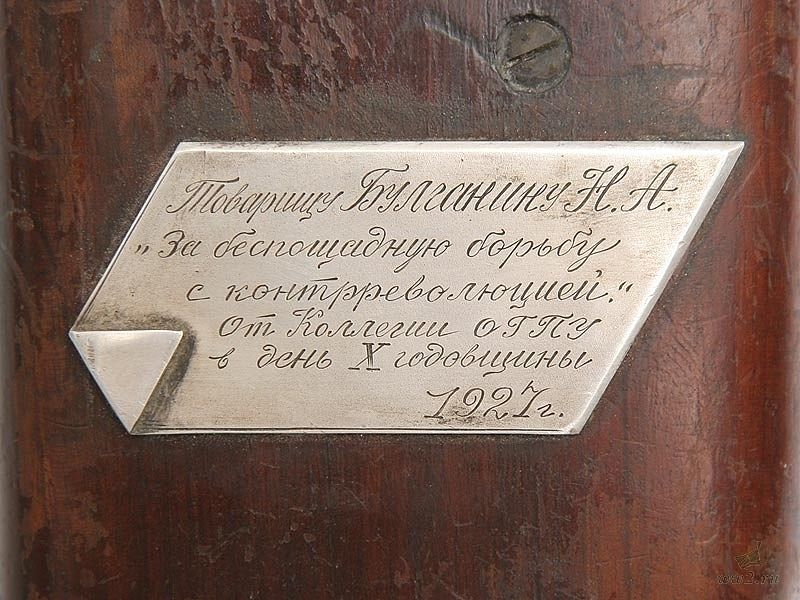 Товарищу Булганину Н. А.
„За беспощадную борьбу
с контрреволюцией."
От Коллегии ОГПУ
в день X годовщины
1927г.
ww2.ru